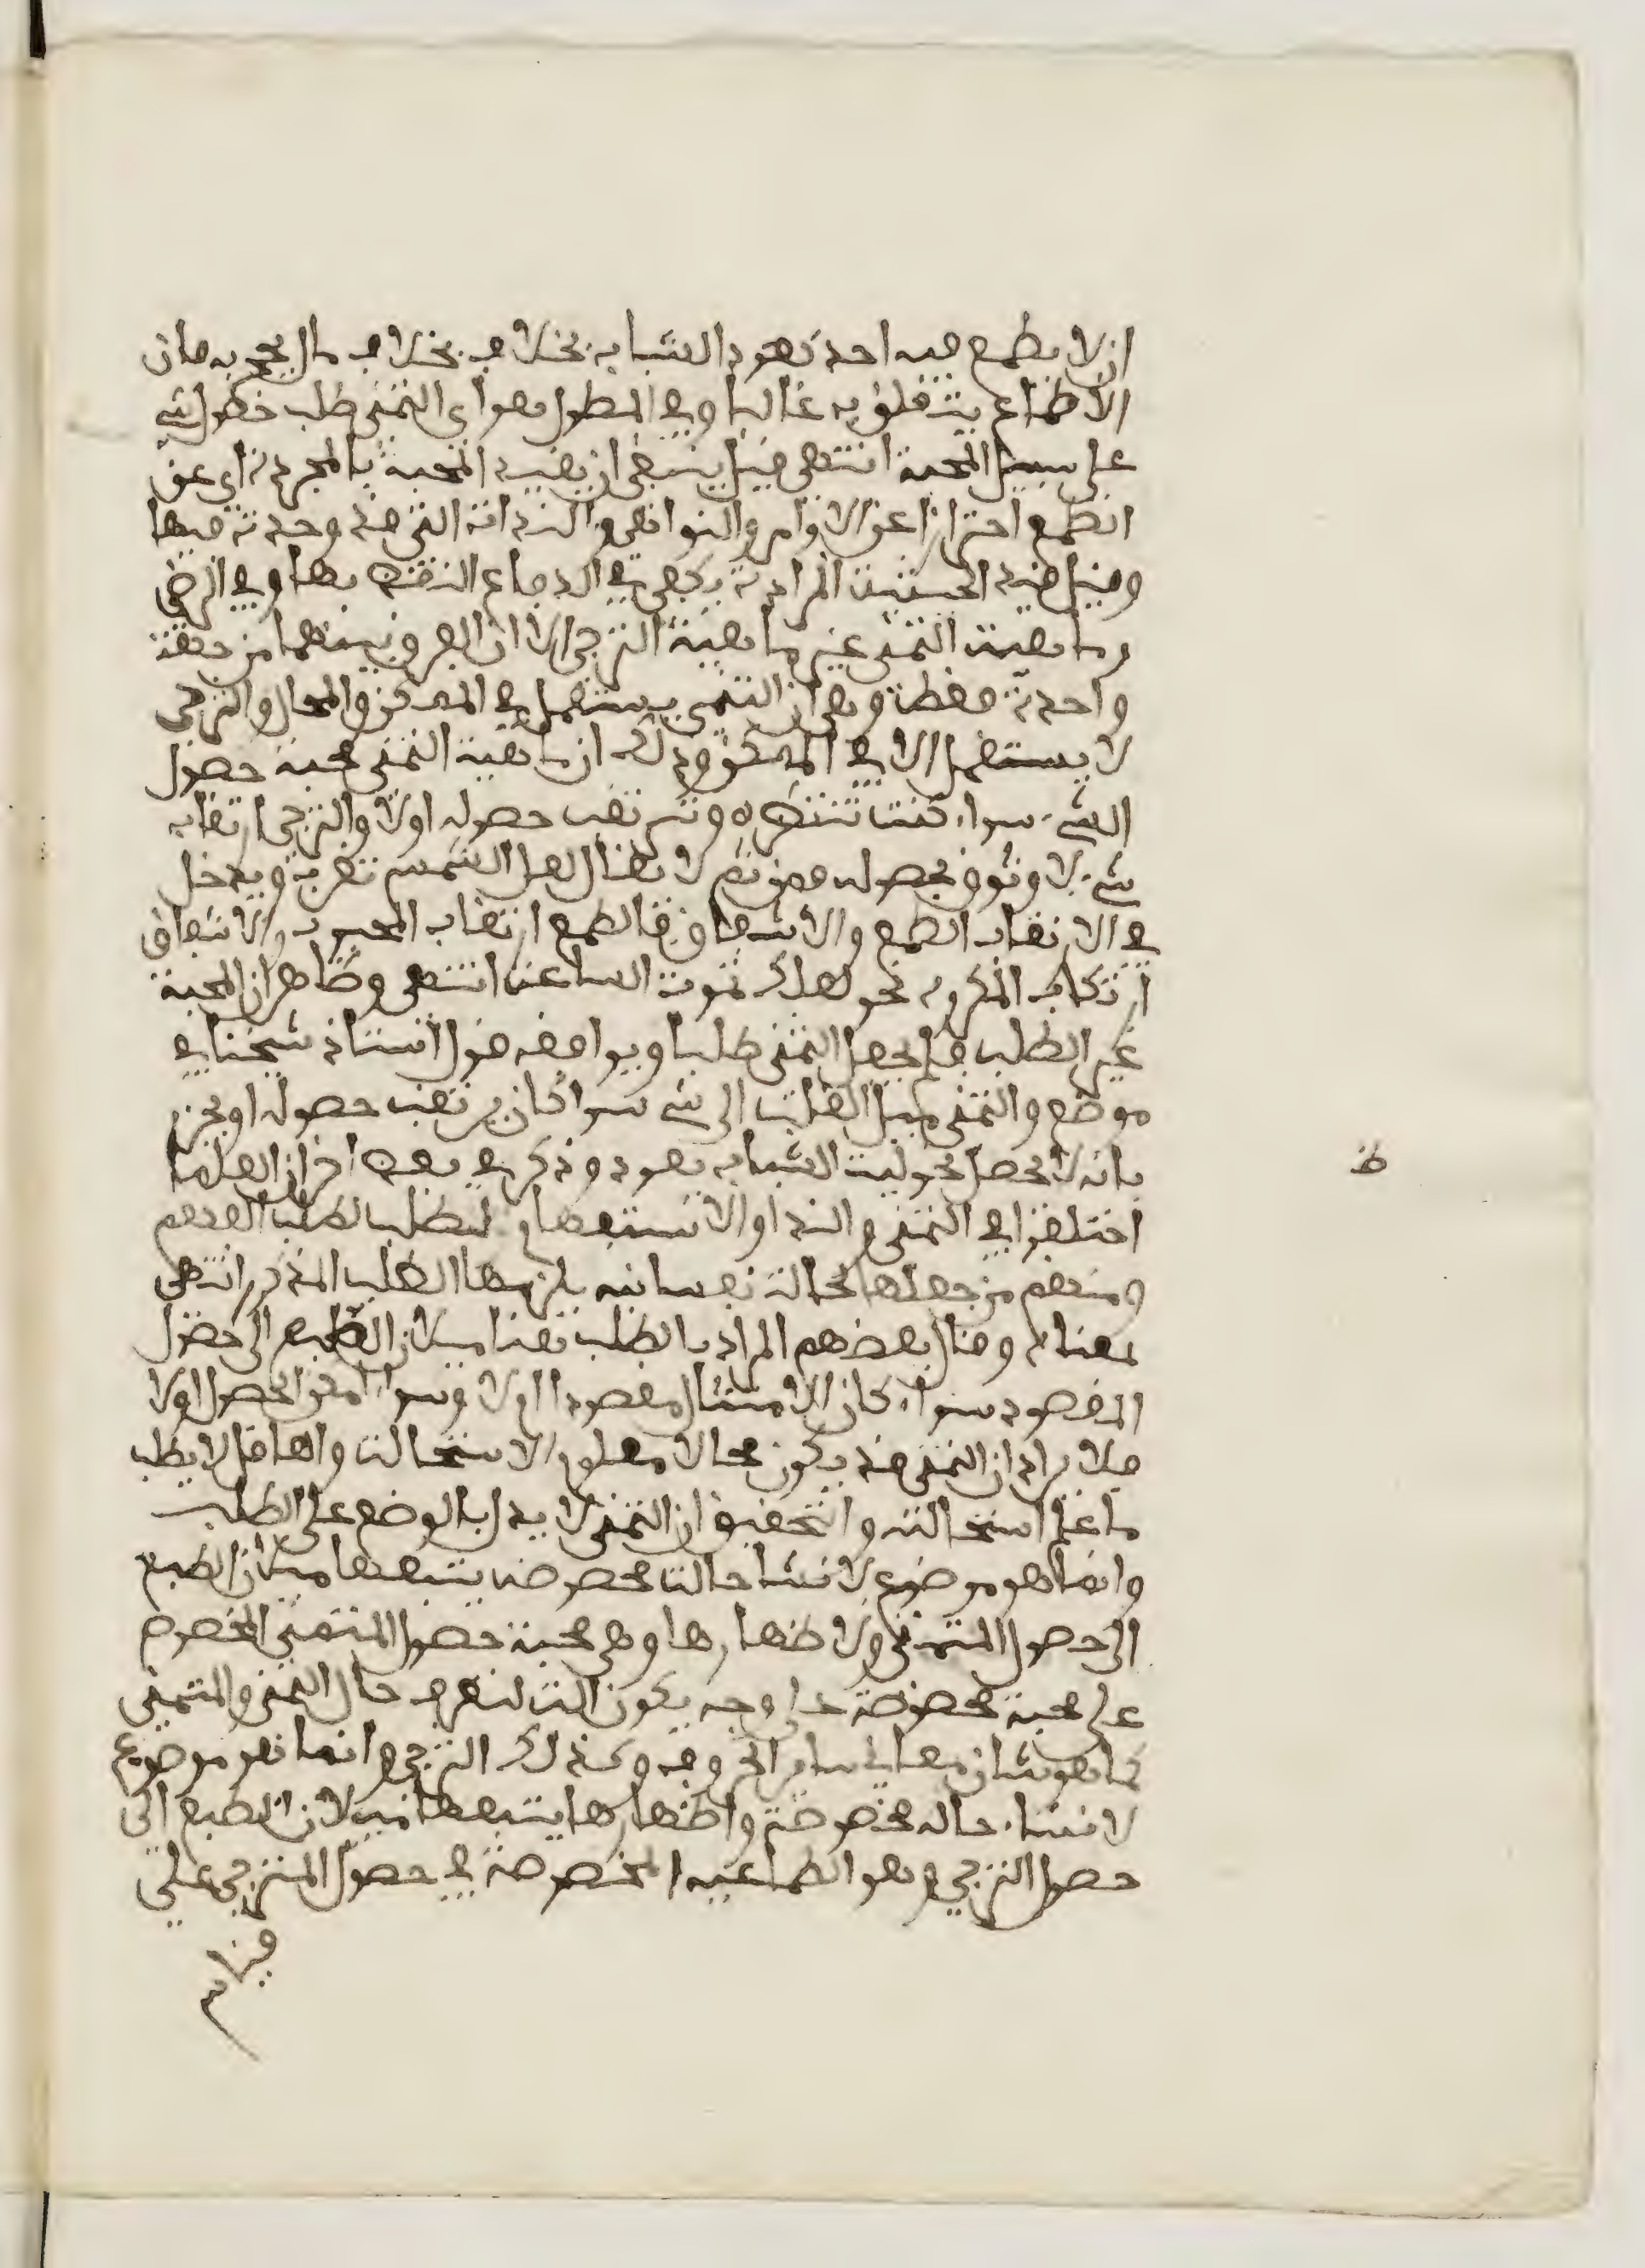 اذ لا يطمع فيه احد بعود الشباب بخلاف بخلاف مال يحج به فان
الاطماع يتعلق به غالبا وفي المطول هو اى التمنى طلب حصول شيء
على سبيل المحبة انتهى قيل ينبغى ان يقيد المحبة بالمجردة اى عن
الطمع احترازا عن الاوامر والنواهى والندا اذ التى قد وجدت فيها
وقيل قيد الحيثية المرادة يكفى في الدفاع النقض بها وفي الرضي
وماهية التمنى غير ماهية الترجى الا ان الفرق بينهما من جهة
واحدة فقط وهى ان التمنى يستعمل في الممكن والمحال والترجى
لا يستعمل الا في الممكن وذلك ان ماهية التمنى محبة حصول
الشيء سواء كنت تنتظره وترتقب حصوله اولا والترجى ارتقاب
شيء لا وثوق بحصوله فمن ثم لا يقال لعل الشمس تغرب ويدخل
في الارتقاب الطمع والاشفاق فالطمع ارتقاب المحبوب والاشفاق
ارتكاب المكروه نحو لعلك تموت الساعة انتهى وظاهر ان المحبة
غير الطلب فلم يجعل التمنى طلبا ويوافقه قول استاذ شيخنا في
موضع والتمنى ميل القلب الى شيء سوا كان يرتقب حصوله او يجزم
بانه لا يحصل نحو ليت الشباب يعود وذكر في بعض اخر ان العلما
اختلفوا في التمنى والندا والاستفهام لطلب لطلب الفهم
ومنهم من جعلها لحالة نفسانيه يلزمها الطلب المذكور انتهى
بمعناه وقال بعضهم المراد بالطلب هنا ميلان الطبع الى حصول
المقصود سواء كان الامتثال مقصودا اولا وسواء امكن الحصول اولا
فلا يراد ان التمنى قد يكون محالا معلوم الاستحالة والعاقل لا يطلب
ما علم استحالته والتحقيق ان التمنى لا يدل بالوضع على الطلب
وانما هو موضوع لانشا حالة مخصوصه يتبعها ميلان الطبع
الى حصول المتمنى ولاظهارها وهى محبة حصول المتمنى المخصوص
على محبة مخصوصة على وجه يكون الت لتعرف حال التمنى والمتمنى
كما هو شان معانى ساير الحروف وكذلك الترجى وانما هو موضوع
لانشاء حاله مخصوصة واظهارها يتبعها ميلان الطبع الى
حصول الترجى وهو الطماعيه المخصوصة في حصول المترجى على